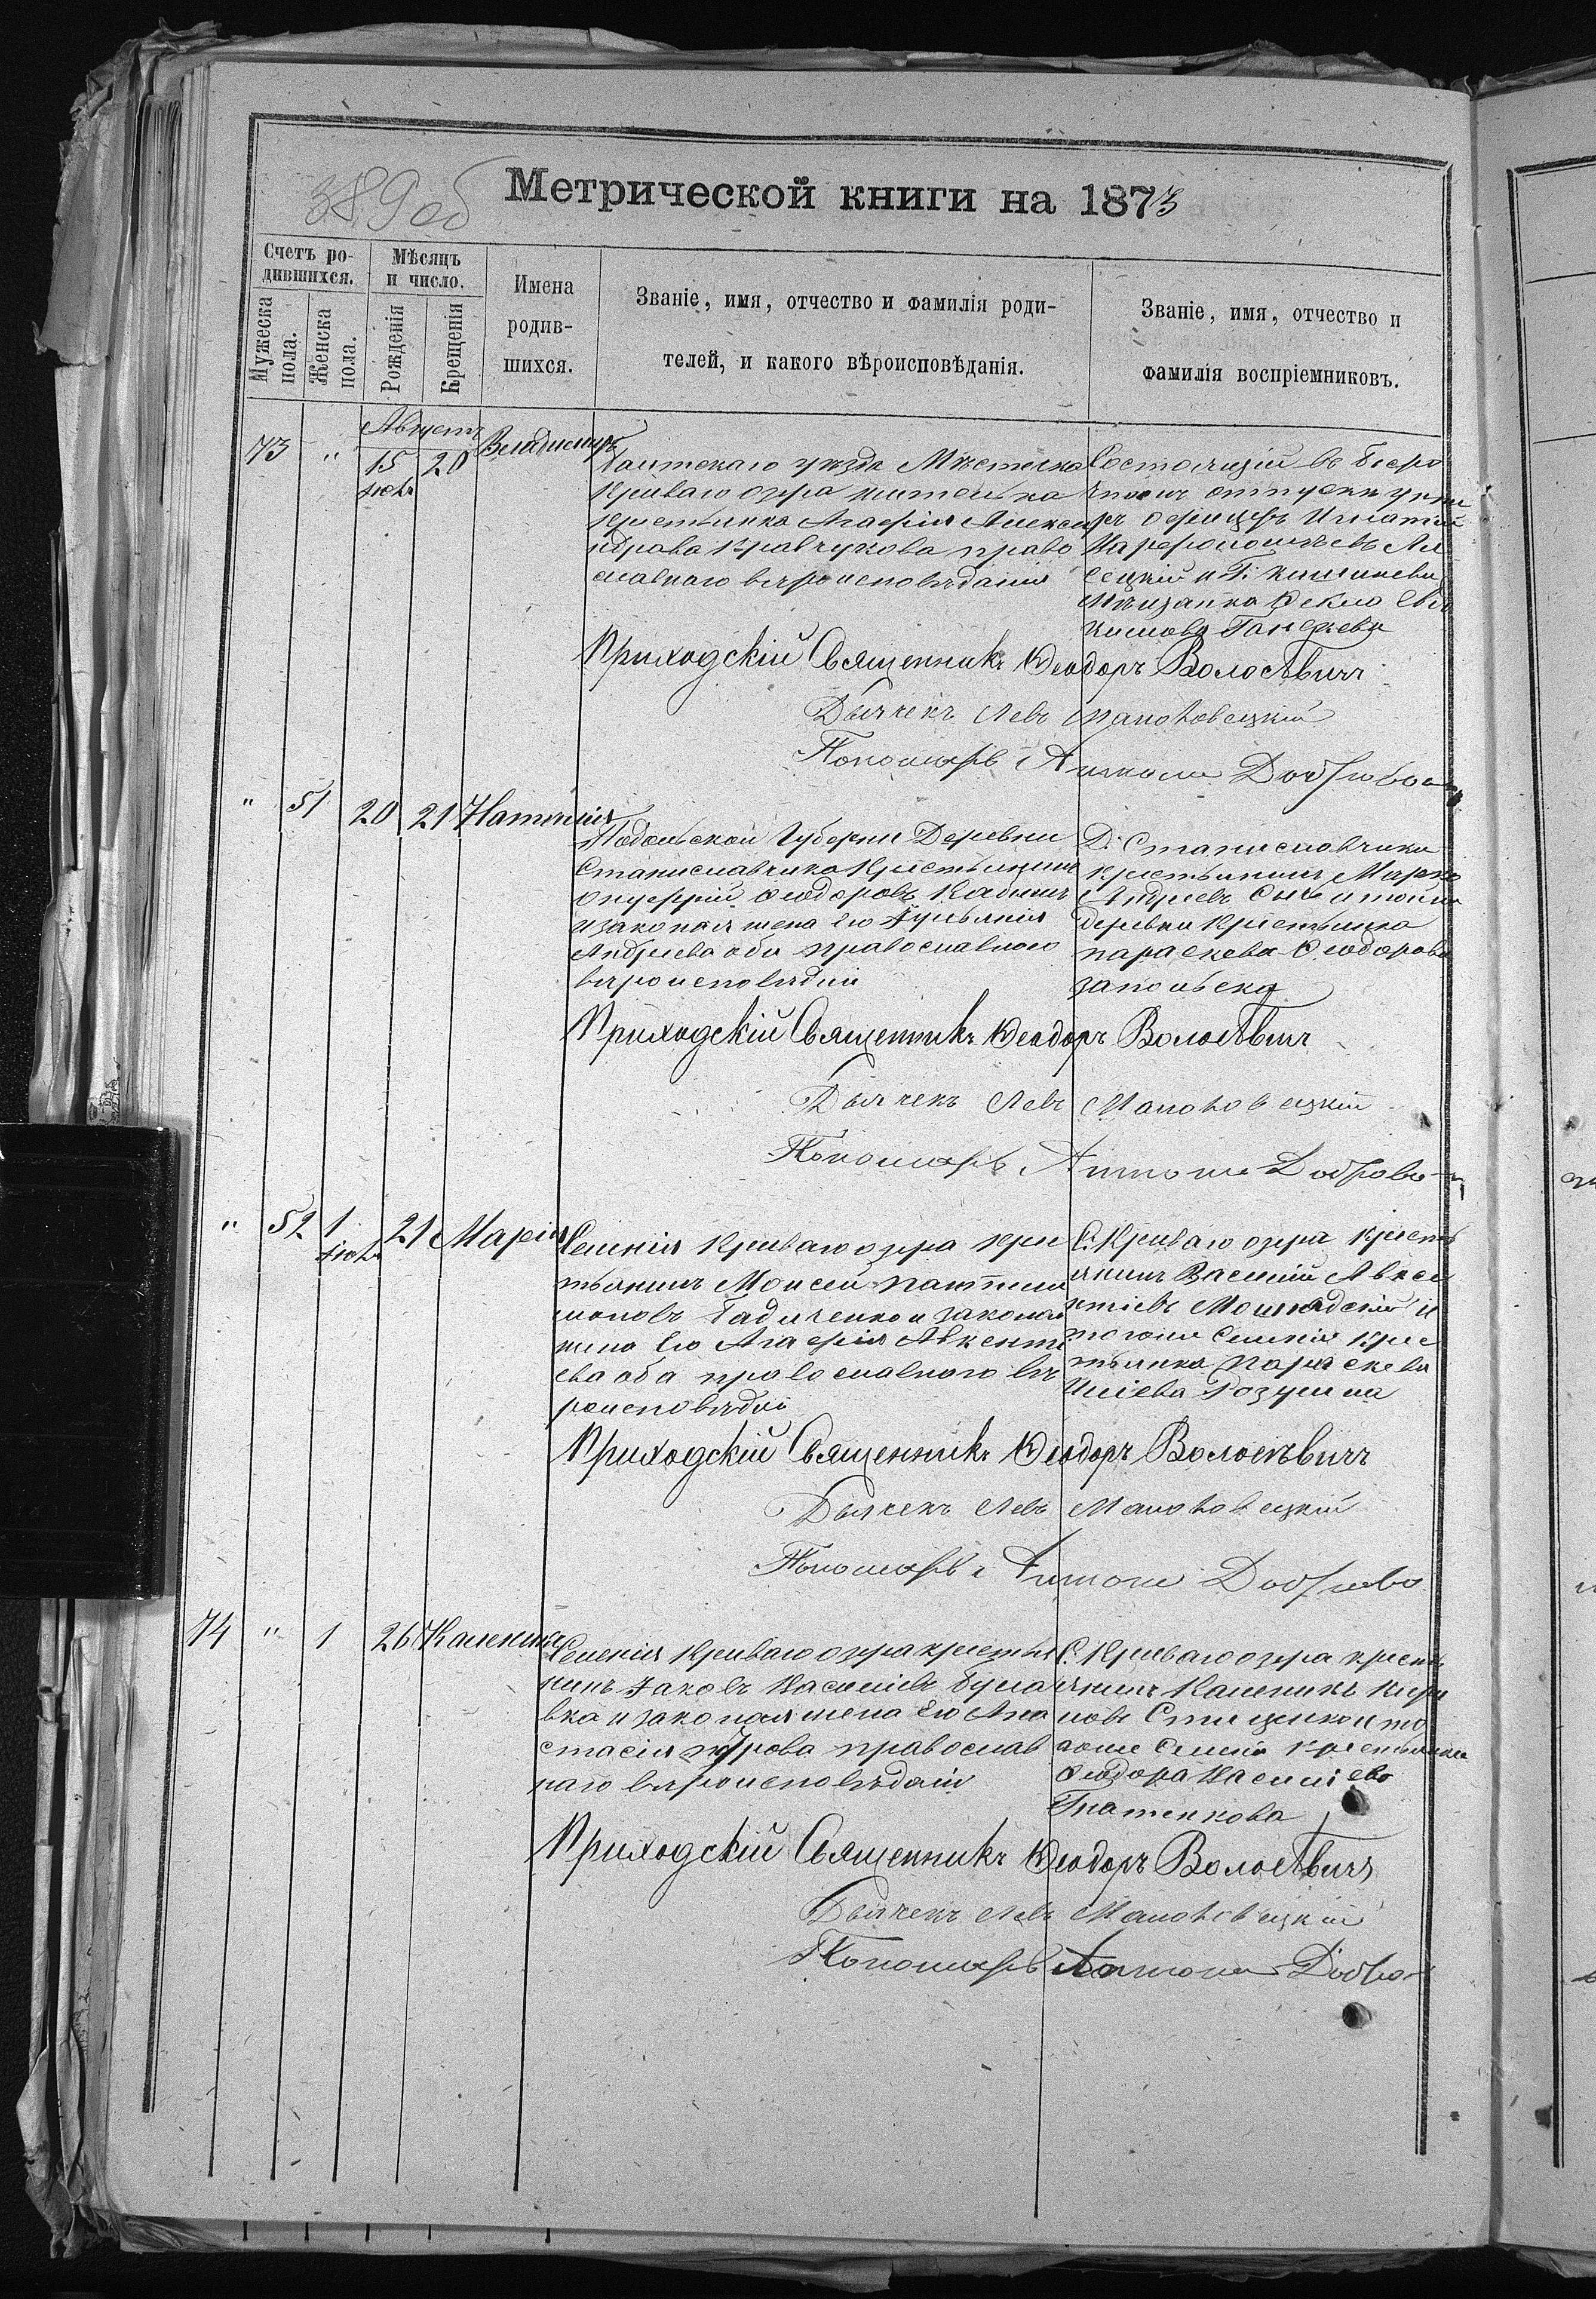 389 об
Метрической книги на 1873
Счетъ ро-
дившихся.
Мужеска
пола.
Женска
пола.
Мѣсяцъ
и число.
Рожденія
Крещенія
Имена
родив-
шихся.
Званіе, имя, отчество и фамилія роди-
телей, и какого вѣроисповѣданія.
Званіе, имя, отчество и
фамилія воспріемниковъ.
Августъ
73 " 15 20 Владимиръ
Балтскаго уѣзда Мѣстечка
Криваго озра жителька
крестьянка Агафія Алексан
дрова Кравчукова право
славнаго вѣроисповѣданія
Состоящій въ безсро
чномъ отпуски унте
ръ офицеръ Игнатій
Парфоломѣевъ
и Г. Кишинева
Мѣщанка Ѳекла Евдо
кимова
Приходскій Священникъ Ѳеодоръ Волосѣвичъ
Дьячекъ Левъ Маньковецкій
Пономарь Антоній
" 51 20 21 Наталія
Подольской Губерніи Деревни
Станиславчика Крестьянинъ
Онуфрій Ѳеодоровъ
и законная жена его Ульянія
Андреева оба православнаго
вѣроисповѣдній
Д. Станиславчика
крестьянинъ Марко
Андреевъ и тойже
деревни Крестьянка
параскева Ѳеодорова
Приходскій Священникъ Ѳеодоръ Волосѣвичъ
Дьячекъ Левъ Маньковецкій
Пономарь Антоній
" 52 1 21 Марія
Селенія Криваго озра кре
тьянинъ Моисей
и законная
жена его Агафія Авкенти
ева оба православнаго вѣ
роисповѣдні
С. Криваго озра кресть
янинъ Василій Авксе
нтіевъ и
тогоже Селенія Крес
тьянка Параскева
Иліева Розумна
Приходскій Священникъ Ѳеодоръ Волосѣвичъ
Дьячекъ Левъ Маньковецкій
Пономарь Антоній
74 " 1 26 Каленикъ
Селенія Криваго озра крестья
нинъ Яковъ Василіевъ Була
вка и законная жена Его Ана
стасія Петрова православ
наго вѣроисповѣданія
С. Криваго озра кресть
янинъ Каленикъ Кири
ловъ Стиценко и то
гоже Селенія крестьянка
Ѳеодора Василіева
Гнатенкова
Приходскій Священникъ Ѳеодоръ Волосѣвичъ
Дьячекъ Левъ Маньковецкій
Пономарь Антоній